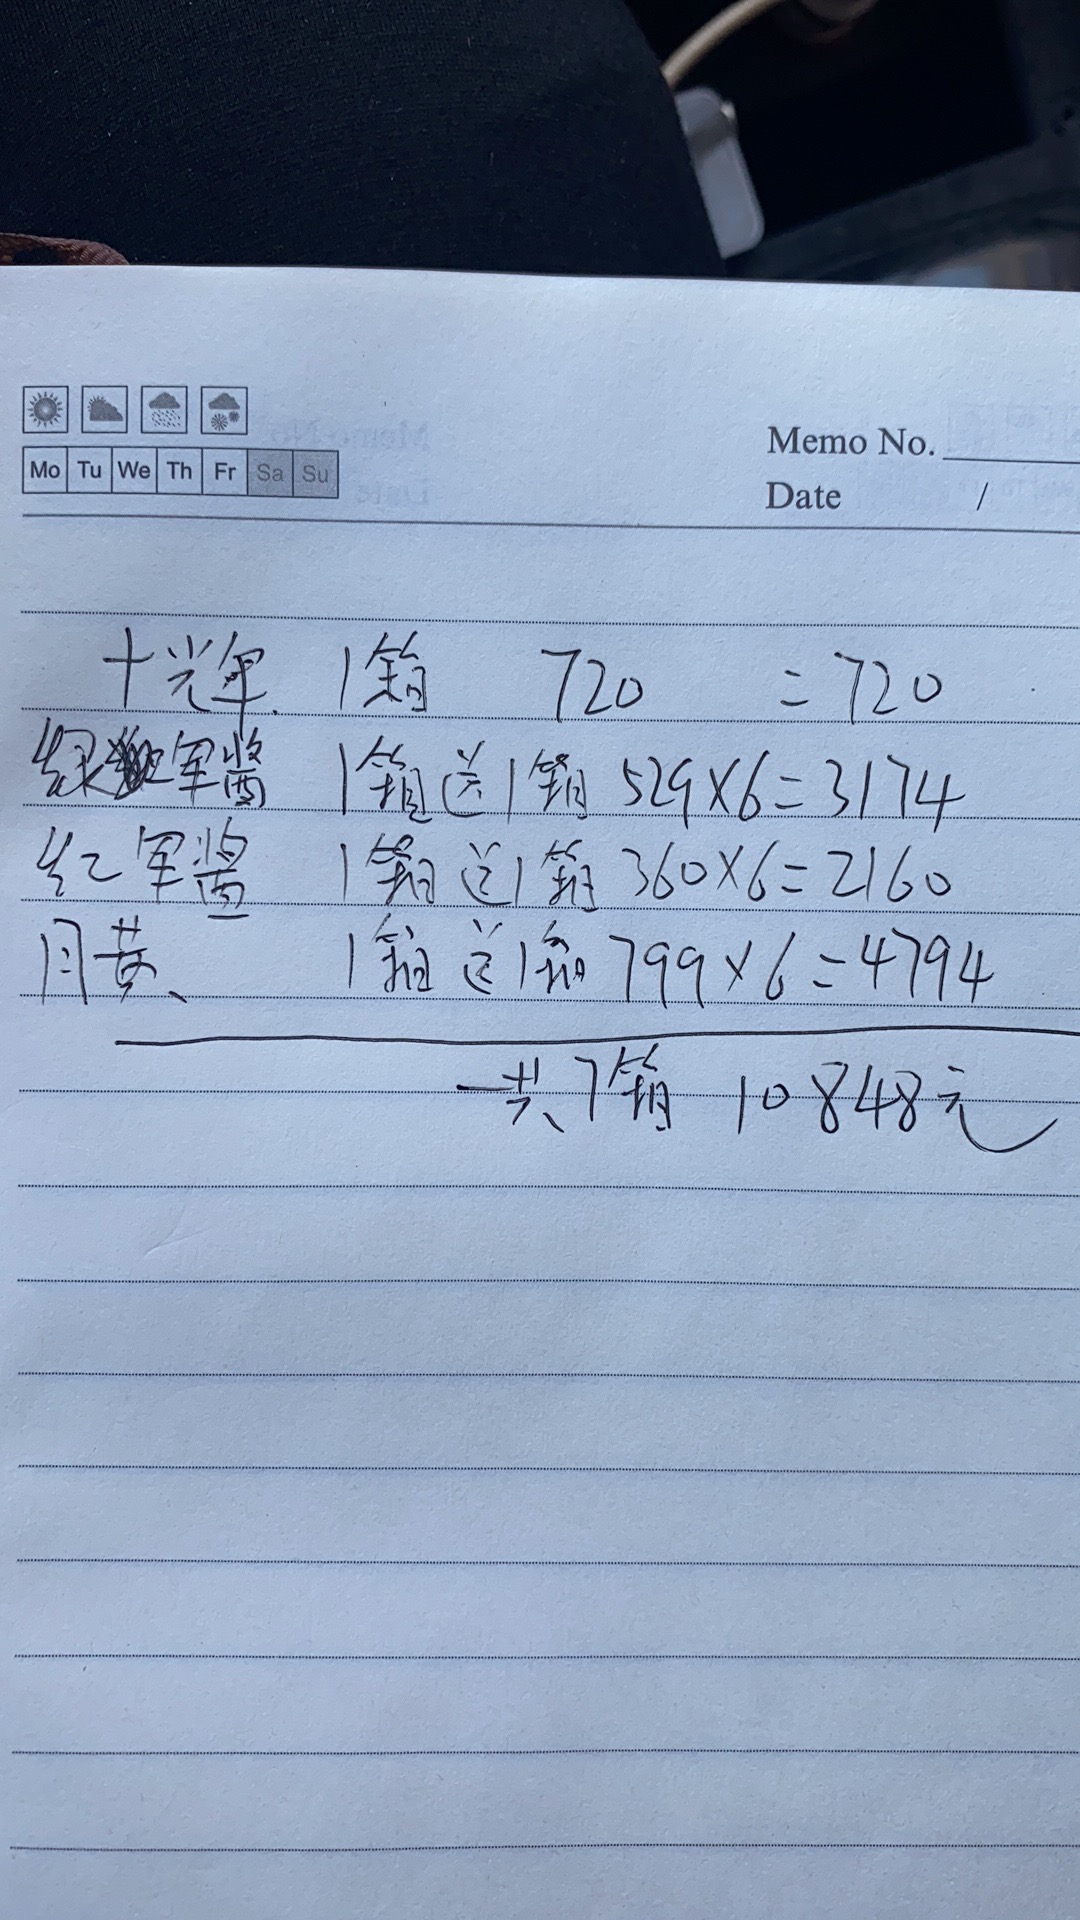 Mo Tu We Th Fr Sa Su
Memo No.
Date /
十光军 1箱 720 =720
绿军酱 1箱送1箱 529×6=3174
红军酱 1箱送1箱 360×6=2160
月黄 1箱送1箱 799×6=4794
一共7箱 10848元